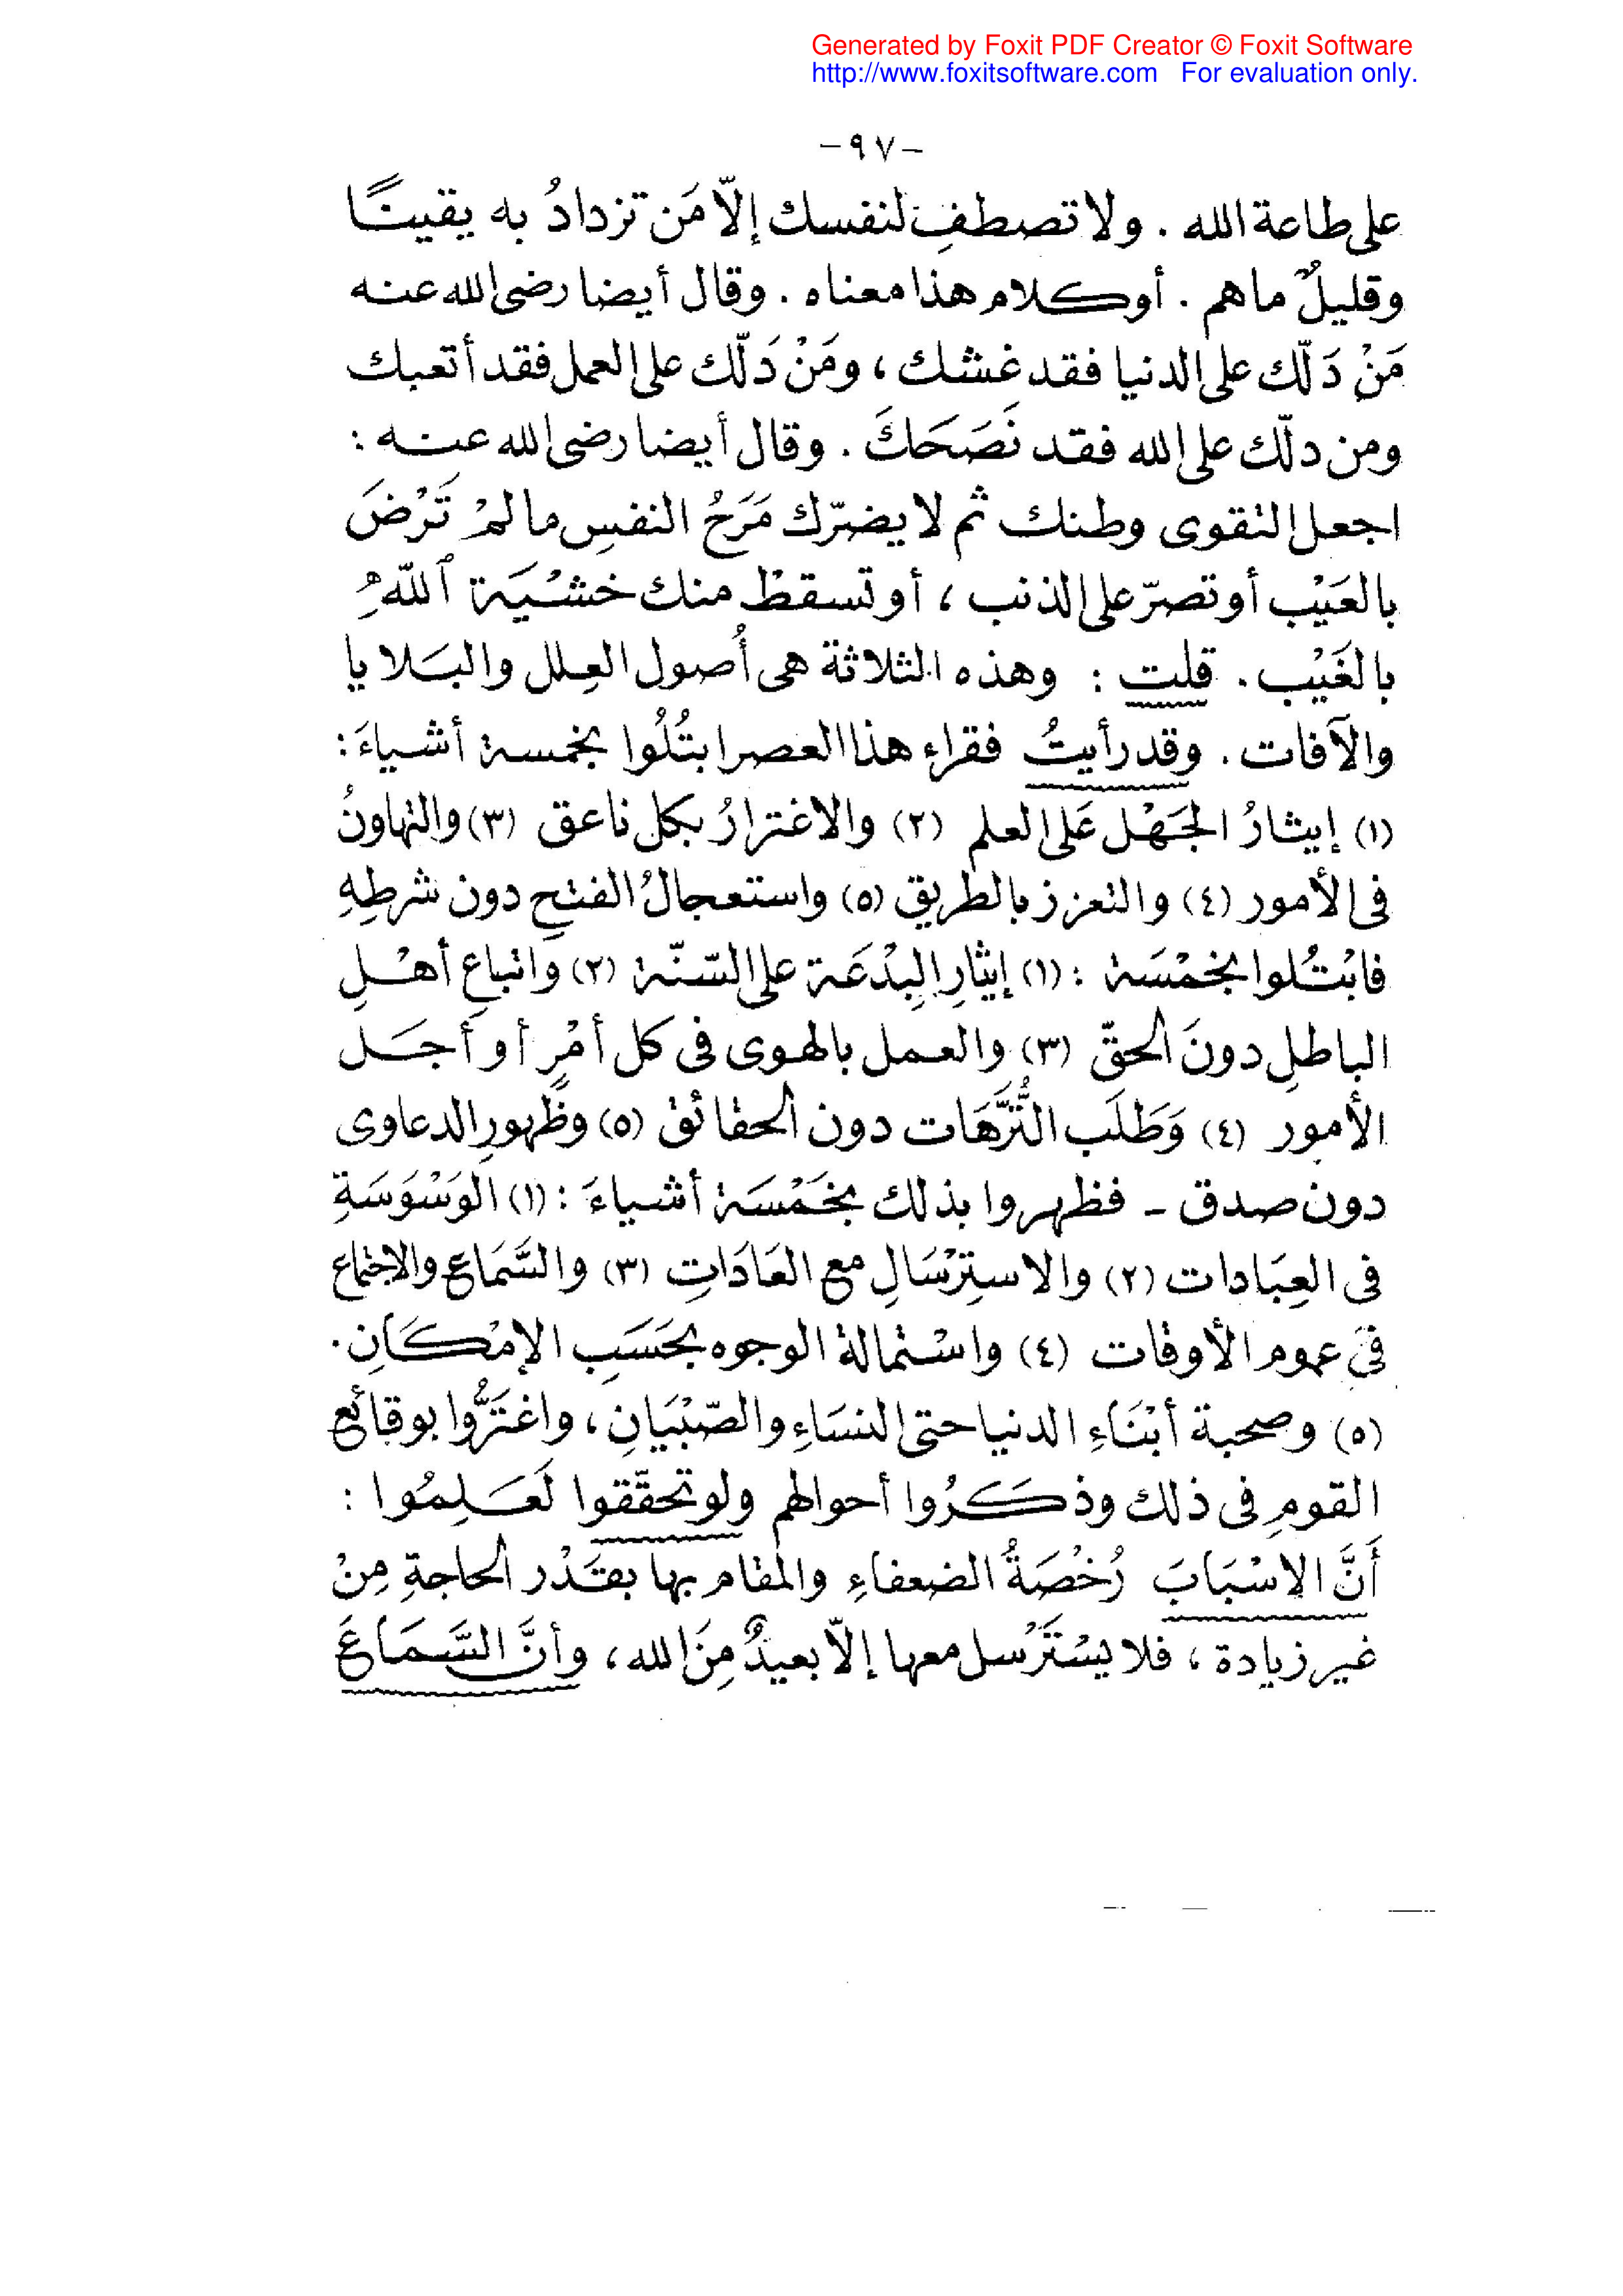 Generated by Foxit PDF Creator © Foxit Software
http://www.foxitsoftware.com   For evaluation only.
-٩٧-
على طاعة الله . ولا تصطفِ لنفسك إلّا مَن تزدادُ به يقينًا
وقليلٌ ما هم . أو كلام هذا معناه . وقال أيضا رضى الله عنه
مَنْ دَلّك على الدنيا فقد غشك ، ومَنْ دَلّك على العمل فقد أتعبك
ومن دلّك على الله فقد نَصَحَكَ . وقال أيضا رضى الله عنه :
اجعل التقوى وطنك ثم لا يضرّك مَرَحُ النفسِ ما لمْ تَرْضَ
بالعَيْبِ أو تصرّ على الذنب ، أو تسقطْ منك خشْيَة ٱللّٰهِ
بالغَيْبِ . قلت : وهذه الثلاثة هى أُصول العِلل والبَلايا
والآفات . وقد رأيتُ فقراء هذا العصر ابتُلُوا بخمسة أشياءَ :
(١) إيثارُ الجَهْل عَلى العلم (٢) والاغترارُ بكل ناعق (٣) والتهاونُ
فى الأمور (٤) والتعزز بالطريق (٥) واستعجالُ الفتحِ دون شرطِهِ
فابْتُلوا بخمْسَة : (١) إيثارِ البِدْعَة على السّنّة (٢) واتباعِ أهْلِ
الباطلِ دونَ الحقّ (٣) والعمل بالهوى فى كل أمْرٍ أو أَجَل
الأمور (٤) وَطَلَبِ التُّرَّهَات دون الحقائق (٥) وظُهورِ الدعاوى
دون صدق - فظهروا بذلك بخَمْسَة أشياءَ : (١) الوَسْوَسَةِ
فى العِبَادات (٢) والاستِرْسَالِ مع العَادَاتِ (٣) والسَّمَاعِ والاجتماع
فى عموم الأوقات (٤) واسْتمالة الوجوه بحَسَبِ الإمْكَانِ .
(٥) وصحبة أبْنَاءِ الدنيا حتى النسَاءِ والصّبْيَانِ ، واغتَرُّوا بوقائع
القومِ فى ذلك وذكَرُوا أحوالهم ولو تحقّقوا لَعَلِمُوا :
أَنَّ الاسْبَابَ رُخْصَةُ الضعفاءِ والمقام بها بقَدْر الحاجةِ مِنْ
غير زيادة ، فلا يسْتَرْسل معها إلّا بعيدٌ مِنَ الله ، وأنَّ السَّمَاعَ